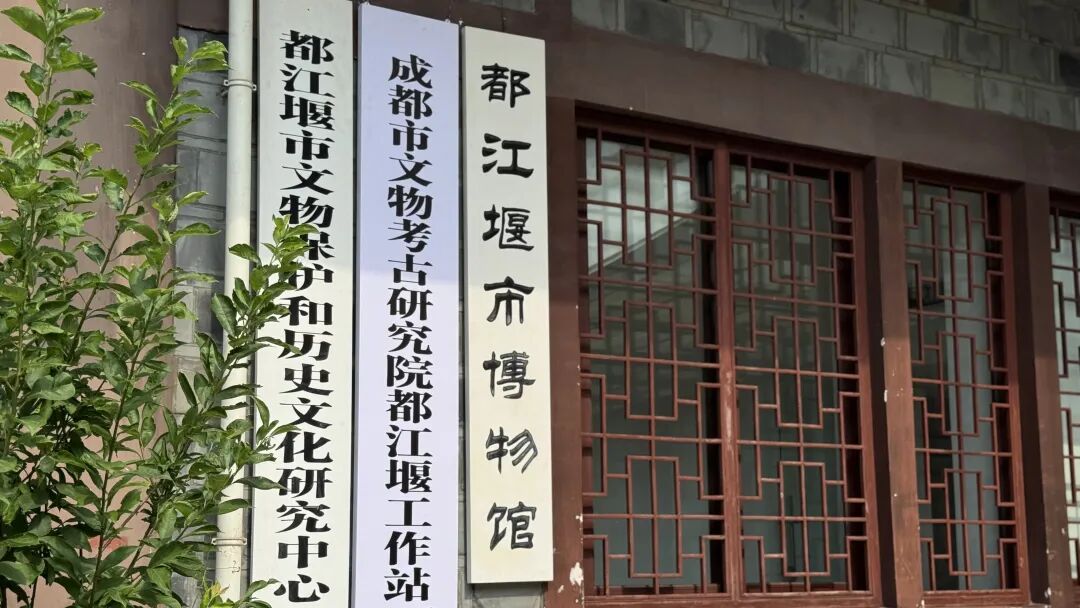 都江堰市文物保护和历史文化研究中心
成都市文物考古研究院都江堰工作站
都江堰市博物馆